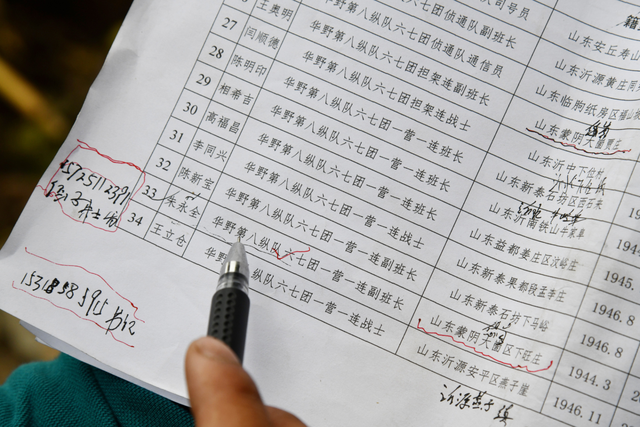 司号员
华野第八纵队六七团侦通队副班长
王奥明 华野第八纵队六七团侦通队通信员
27 闫顺德 华野第八纵队六七团担架连副班长
28 陈明印 华野第八纵队六七团担架连战士
29 相希吉 华野第八纵队六七团一营一连班长
30 高福昌 华野第八纵队六七团一营一连班长
31 李同兴 华野第八纵队六七团一营一连战士
32 陈新宝 华野第八纵队六七团一营一连副班长
33 朱永全 华野第八纵队六七团一营一连副班长
34 王立仓 华野 纵队六七团一营一连战士
山东安丘寿山
山东沂源黄庄
山东临朐纸房区福山
山东蒙阴大崮贾庄
山东沂中下位村
山东新泰石坊区西石来
山东沂南铁山辛家阜
山东益都姜庄区汶峪庄 1945.
山东新泰果都段孟李庄 1946.8
山东新泰石坊下马峪 1946.8
山东蒙阴大崮区下旺庄 1944.3
山东沂源安平区燕子崖 1946.11
沂源燕子崖
15725112391
15318985915 书记